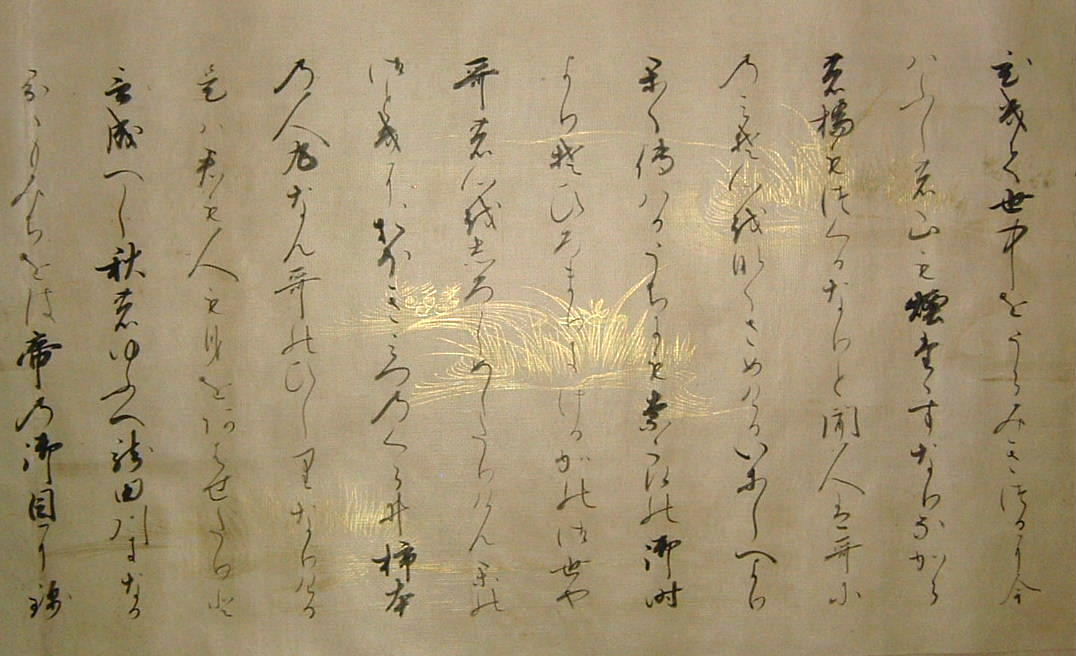 ひきて世中をうらみきつるに今
はふしの山も煙たゝすなりなから
の橋もつくるなりと聞人は哥に
のみそ心をなくさめけるいにしへより
かく傳はるうちにもならの御時
よりそひろまりにけるかの御世や
哥の心をしろしめしたりけんかの
御時におほきみつのくらゐ柿本
の人丸なん哥のひしりなりける
是は君も人も身をあはせたりと
云成へし秋のゆふへ龍田川になかる
るもみちをは帝の御目に錦